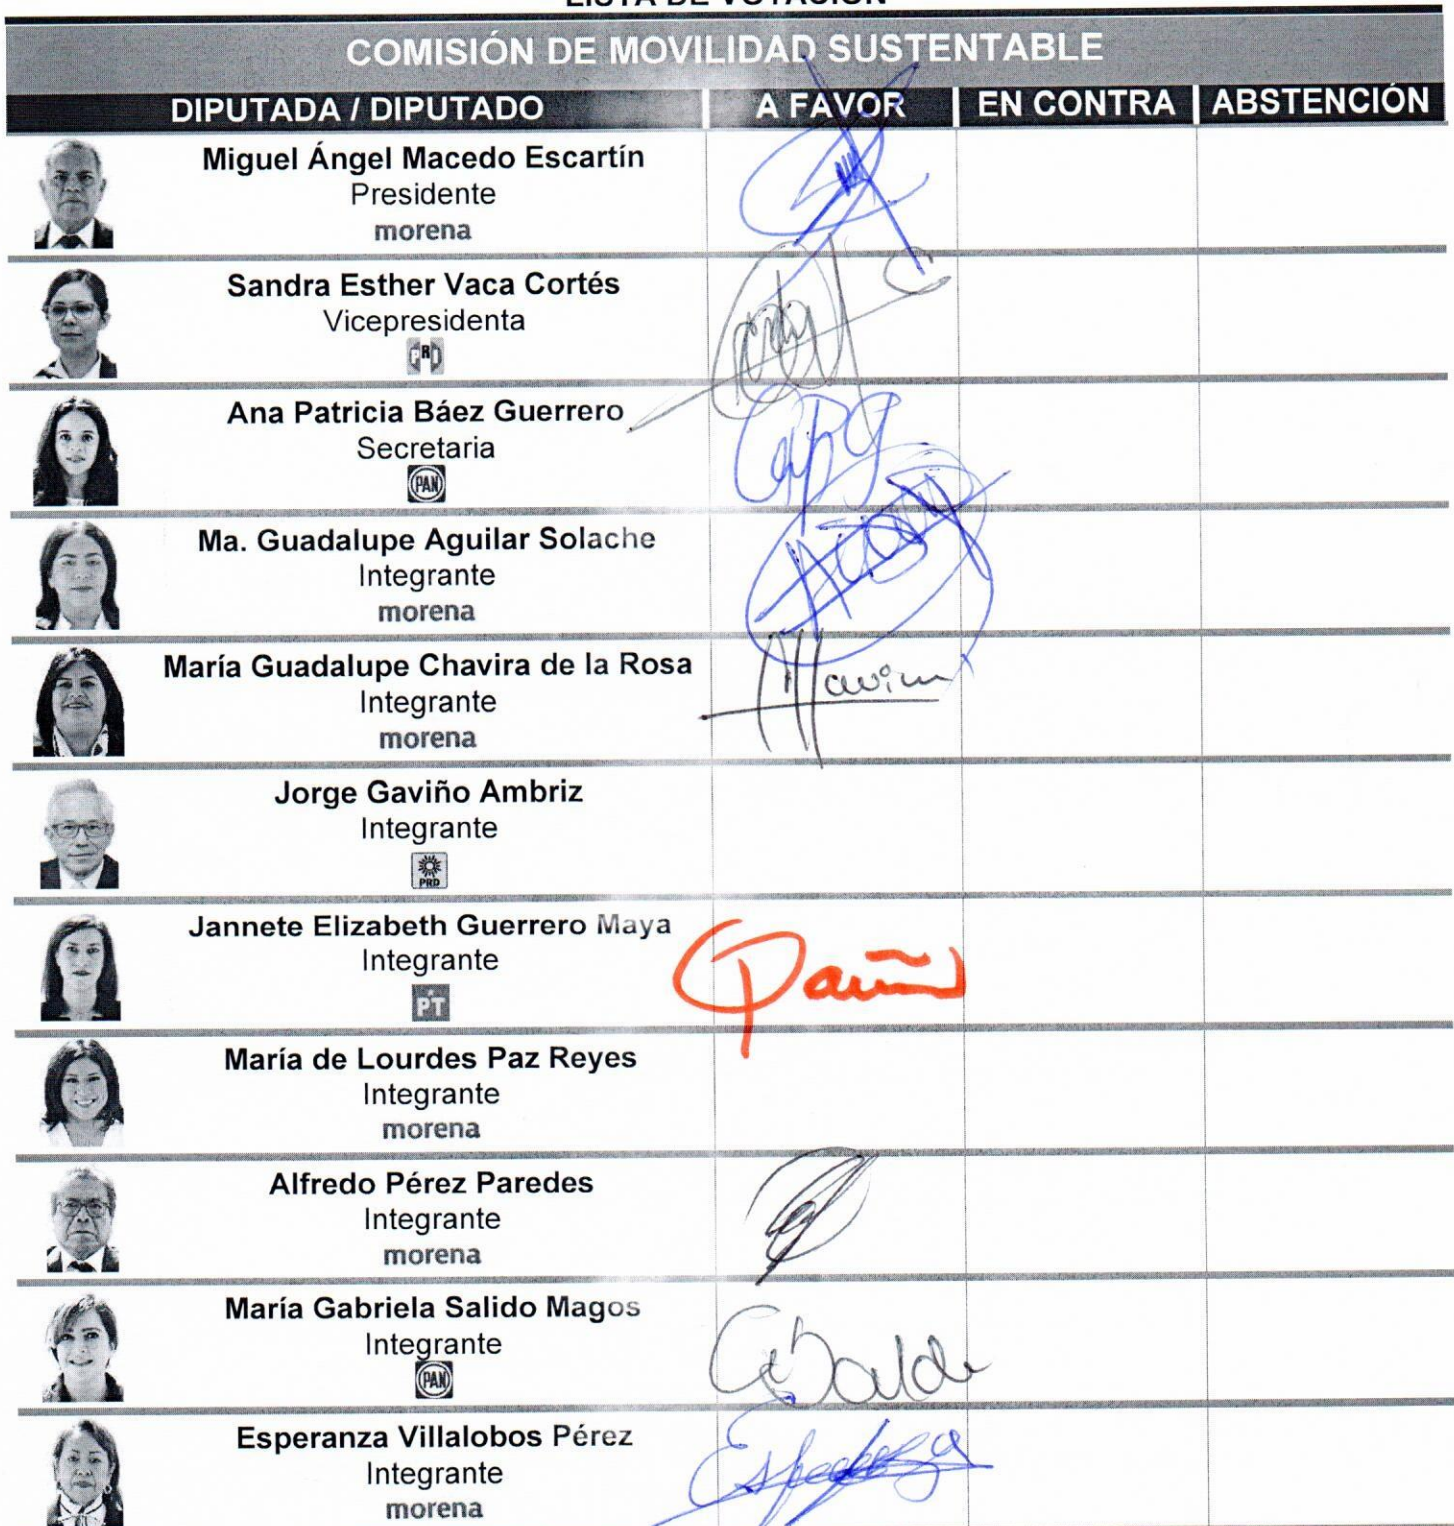 LISTA DE VOTACIÓN
COMISIÓN DE MOVILIDAD SUSTENTABLE
DIPUTADA / DIPUTADO A FAVOR EN CONTRA ABSTENCIÓN
Miguel Ángel Macedo Escartín
Presidente
morena
Sandra Esther Vaca Cortés
Vicepresidenta
PRD
Ana Patricia Báez Guerrero
Secretaria
PAN
Ma. Guadalupe Aguilar Solache
Integrante
morena
María Guadalupe Chavira de la Rosa
Integrante
morena
Jorge Gaviño Ambriz
Integrante
PRD
Jannete Elizabeth Guerrero Maya
Integrante
PT
María de Lourdes Paz Reyes
Integrante
morena
Alfredo Pérez Paredes
Integrante
morena
María Gabriela Salido Magos
Integrante
PAN
Esperanza Villalobos Pérez
Integrante
morena